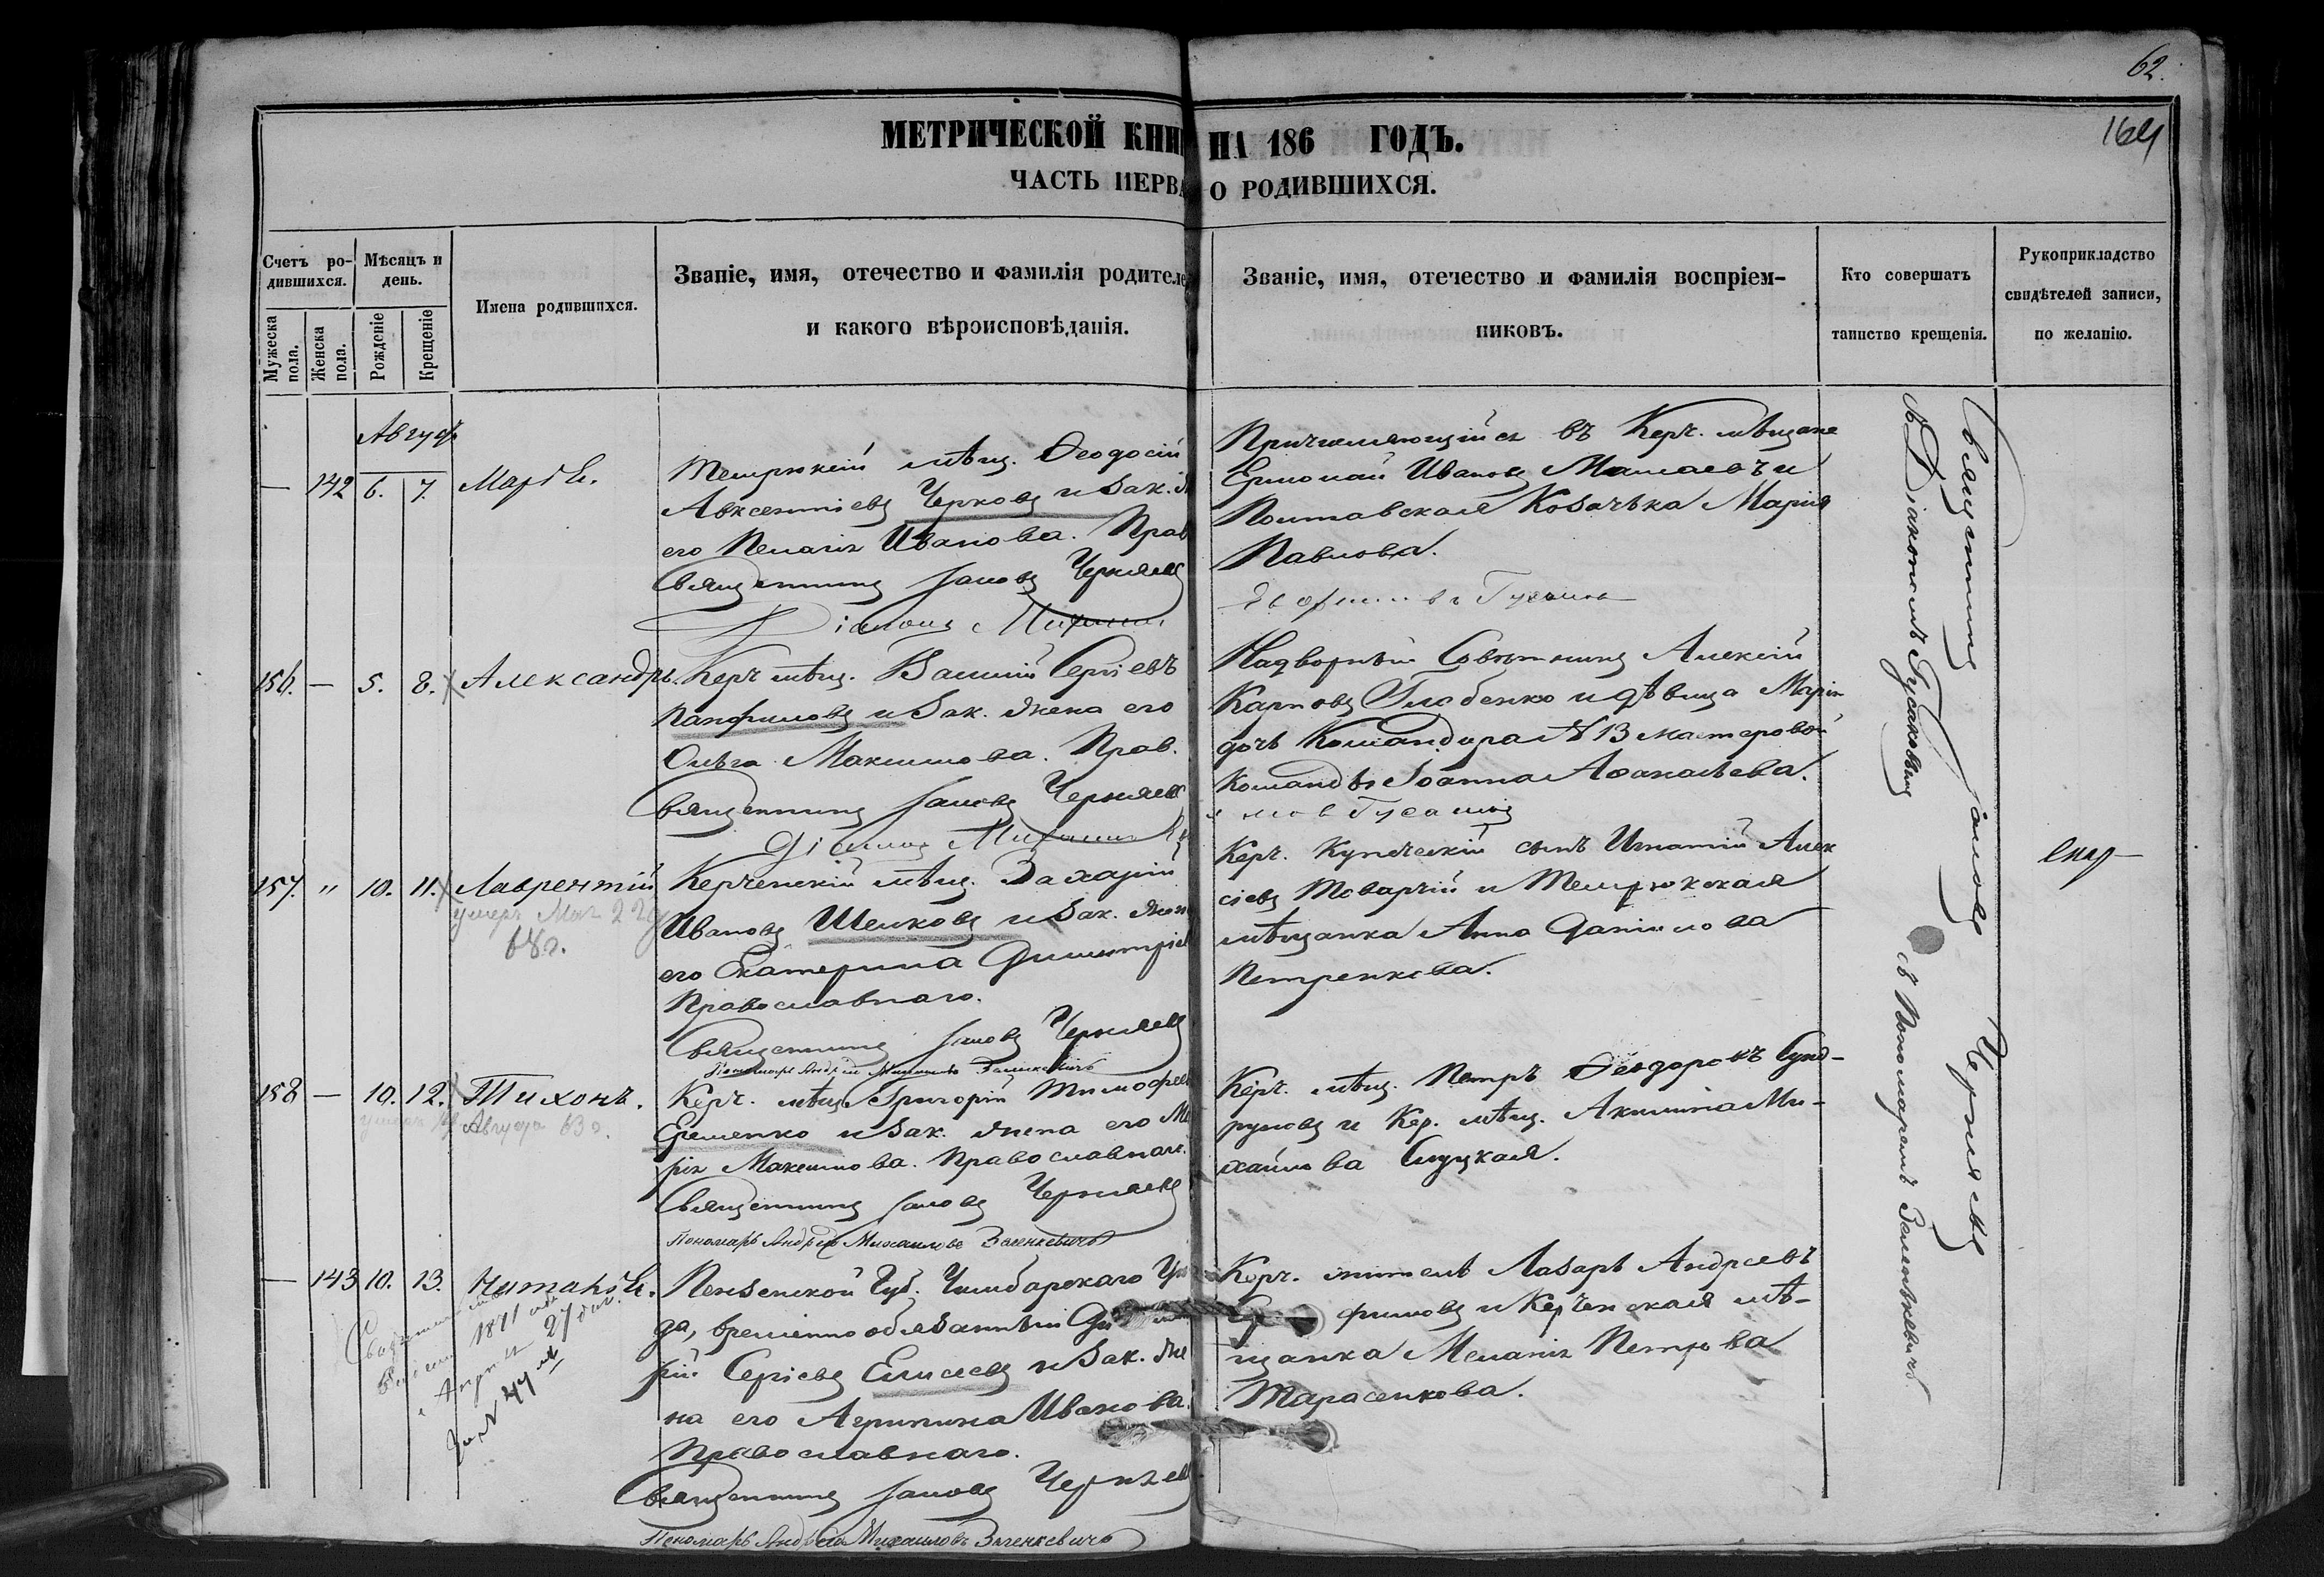 62.
164
МЕТРИЧЕСКОЙ КНИ НА 186 ГОДЪ.
ЧАСТЬ ПЕРВА О РОДИВШИХСЯ.
Счетъ ро-
дившихся.
Мужеска
пола.
Женска
пола.
Мѣсяцъ и
день.
Рожденіе
Крещеніе
Имена родившихся.
Званіе, имя, отечество и фамилія родителе
и какого вѣроисповѣданія.
Званіе, имя, отечество и фамилія воспріем-
никовъ.
Кто совершатъ
таинство крещенія.
Рукоприкладство
свидѣтелей записи,
по желанію.
Август
— 142 6. 7. Марѳа.
Темрюкскій мѣщ. Ѳеодосій
Авксентіевъ Черновъ и зак. ж
его Пелагія Иванова. Прав
Священникъ Іаковъ Черняевъ
Діаконъ
Причисляющійся въ Керч. мѣщане
Ермолай Ивановъ Мамаевъ и
Полтавская Козачька Марія
Павлова.
156. — 5. 8. Александръ.
Керч. мѣщ. Василій Сергіевъ
Панфиловъ и зак. жена его
Ольга Максимова. Прав.
Священникъ Іаковъ Черняевъ
Діаконъ
Надворный Совѣтникъ Алексій
Карповъ Глобенко и дѣвица Марія
дочь Командира № 13 мастеровой
команды Іоанна Аѳанасьева.
157. " 10. 11. Лаврентій
умеръ Мая 22
68 г.
Керченскій мѣщ. Захарій
Ивановъ Шелковъ и зак. жена
его Екатерина Димитріев
Православнаго.
Священникъ Іаковъ Черняевъ
Пономарь Андрей Михаиловъ Зеленкевичъ
Керч. купеческій сынъ Игнатій Алек
сіевъ Товарчій и Темрюкская
мѣщанка Анна Даніилова
Петренкова.
158 — 10. 12. Тихонъ.
умеръ Августа 63 г.
Керч. мѣщ. Григорій Тимофеев
Еременко и зак. жена его Ма
рія Максимова. Православнаго.
Священникъ Іаковъ Черняевъ
Пономарь Андрей Михаиловъ Зеленкевичъ
Керч. мѣщ. Петръ Ѳеодоровъ
и Кер. мѣщ. Акилина Ми-
хайлова Слуцкая.
— 143 10. 13. Наталья.
1871 года
Апреля 27 дня
за № 47
Пензенской Губ. Чембарскаго Уѣз
да, временно обязанный Дмит
рій Сергіевъ Елисеевъ и зак. же
на его Агрипина Иванова.
Православнаго.
Священникъ Іаковъ Черняевъ
Пономарь Андрей Михаиловъ Зеленкевичъ
Керч. житель Лазарь Андреевъ
и Керченская мѣ-
щанка Меланія Петрова
Тарасенкова.
Священникъ Іаковъ Черняевъ
съ Діакономъ Гусаковымъ
съ Пономаремъ Зеленкевичъ